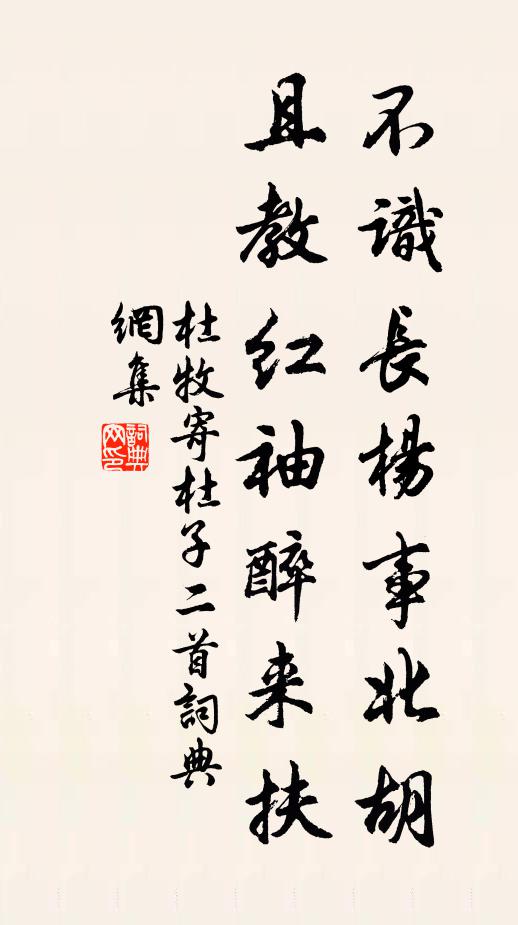 不識長楊事北胡
且教红袖醉来扶
杜牧寄杜子二首詞典
網集
詞典
网印